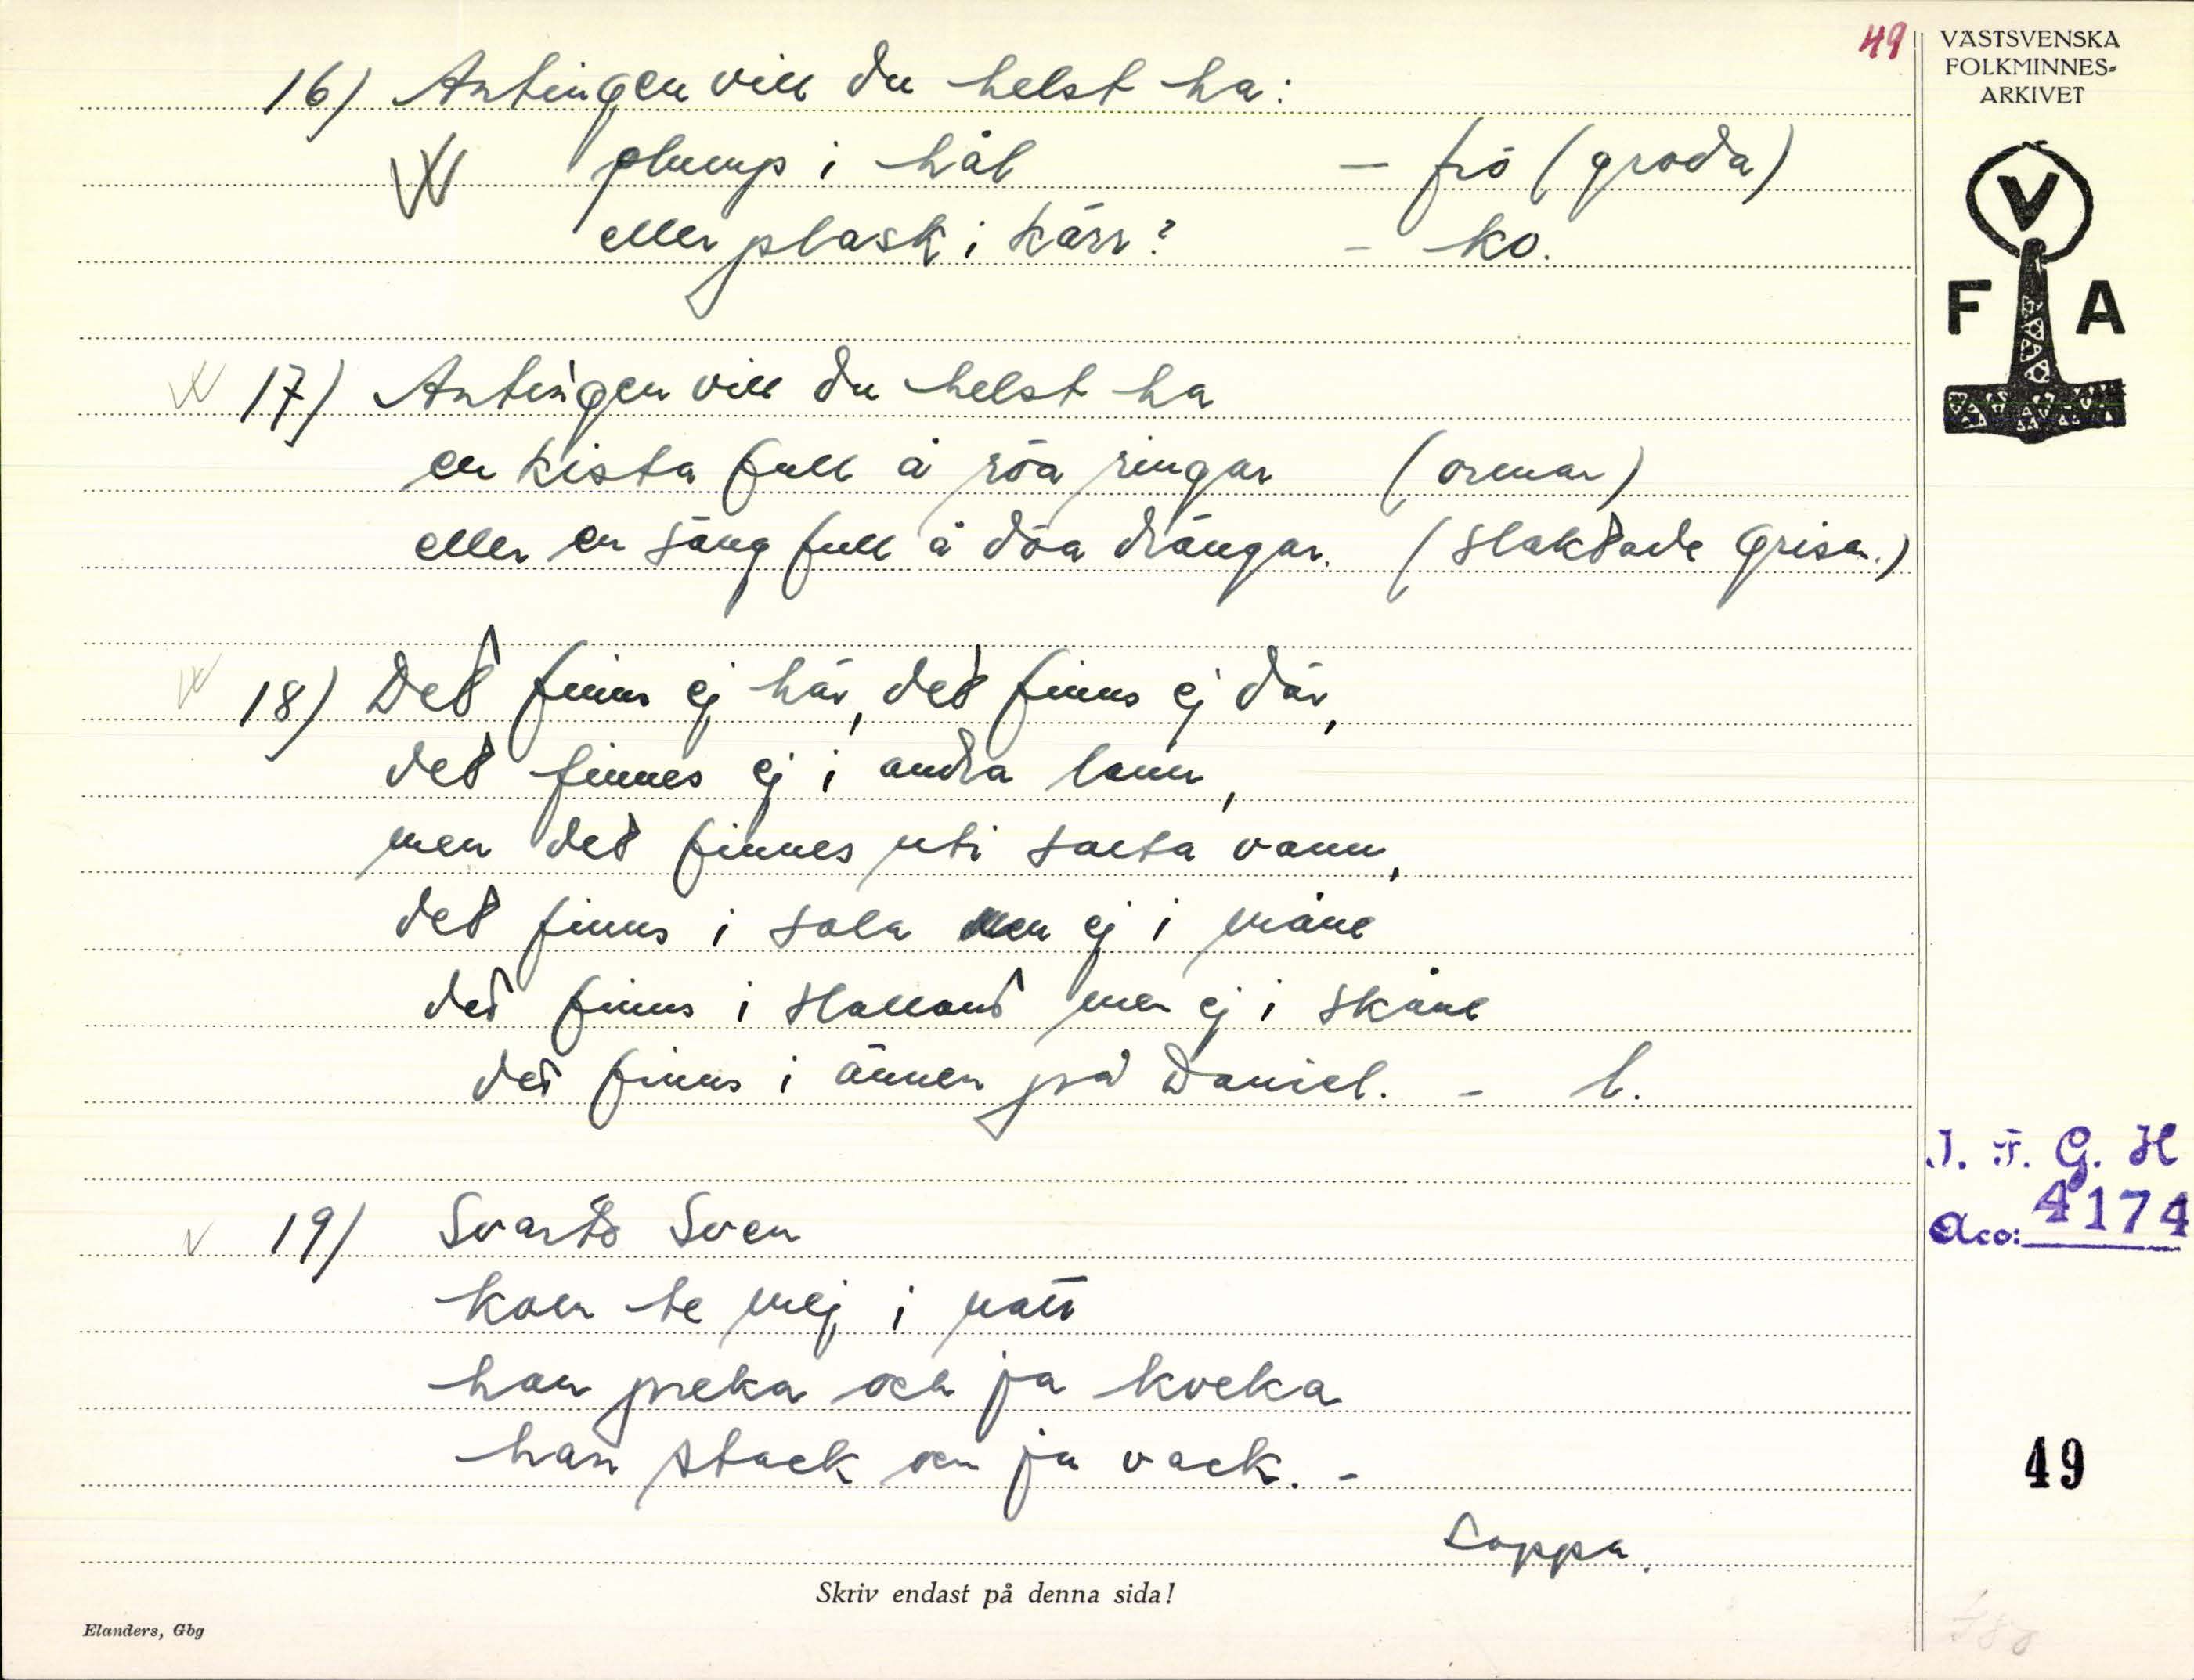 49
VÄSTSVENSKA
FOLKMINNES-
ARKIVET
V
F A
16) Antingen vill du helst ha:
plump i hål – frö (groda)
eller plask i kärr? – ko.
17) Antingen vill du helst ha
en kista full å röa ringar (ormar)
eller en säng full å döa drängar. (slaktade grisar.)
18) Det finns ej här, det finns ej där,
det finnes ej i andra lann,
men det finnes uti salta vann,
det finns i sola men ej i måne
det finns i Halland men ej i Skåne
det finns i ännen på Daniel. – l.
19) Svarte Sven
kom te mej i natt
han preka och ja kveka
han stack och ja vack. –
Loppa.
I. F. G. H
Acc: 4174
49
Skriv endast på denna sida!
Elanders, Gbg